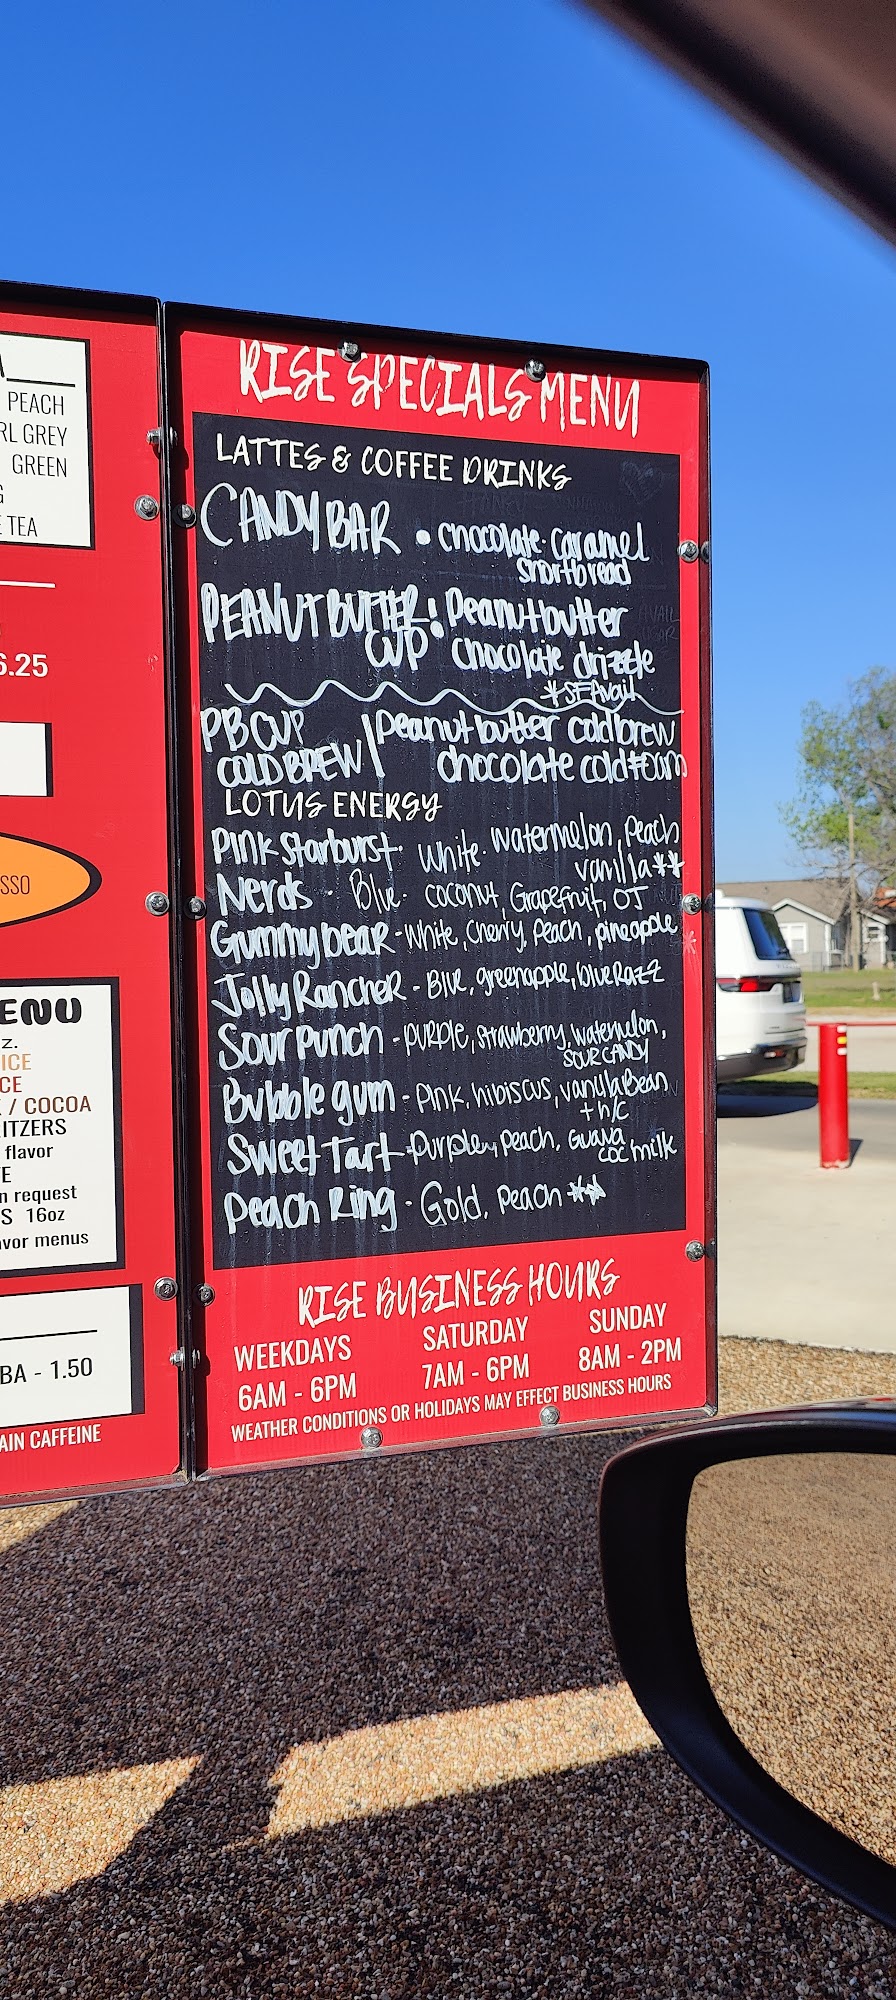 PEACH
RL GREY
GREEN
G
E TEA
6.25
SSO
ENU
z.
ICE
CE
/ COCOA
ITZERS
flavor
E
n request
S 16oz
vor menus
BA - 1.50
AIN CAFFEINE
RISE SPECIALS MENU
LATTES & COFFEE DRINKS
CANDY BAR • chocolate · caramel
shortbread
PEANUT BUTTER : Peanut butter
CUP chocolate drizzle
*SF Avail
PB CUP | peanut butter cold brew
COLD BREW chocolate cold foam
LOTUS ENERGY
Pink Starburst · White · Watermelon, Peach
vanilla**
Nerds · Blue · coconut, Grapefruit, OJ
Gummybear - white, cherry, peach, pineapple
*
Jolly Rancher - Blue, greenapple, blue Razz
Sour Punch - purple, strawberry, watermelon,
SOUR CANDY
Bubble gum - Pink, hibiscus, vanylabean
+ h/c
Sweet Tart - Purple, peach, Guava
coc milk
Peach Ring - Gold, peach **
RISE BUSINESS HOURS
WEEKDAYS SATURDAY SUNDAY
6AM - 6PM 7AM - 6PM 8AM - 2PM
WEATHER CONDITIONS OR HOLIDAYS MAY EFFECT BUSINESS HOURS